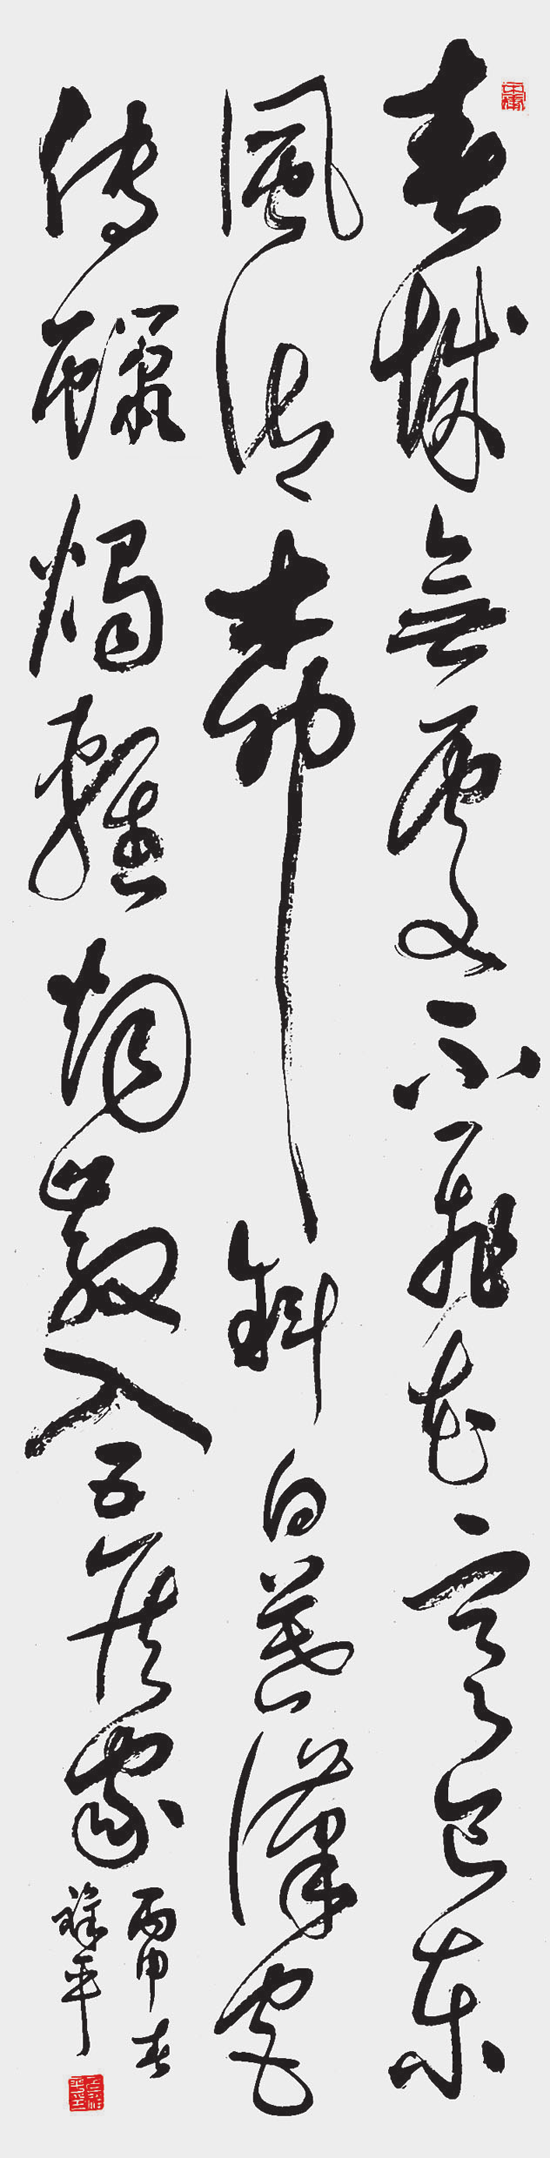 春城無處不飛花寒食東
風御柳斜日暮漢宮
傳蠟燭輕烟散入五侯家
丙申春
平